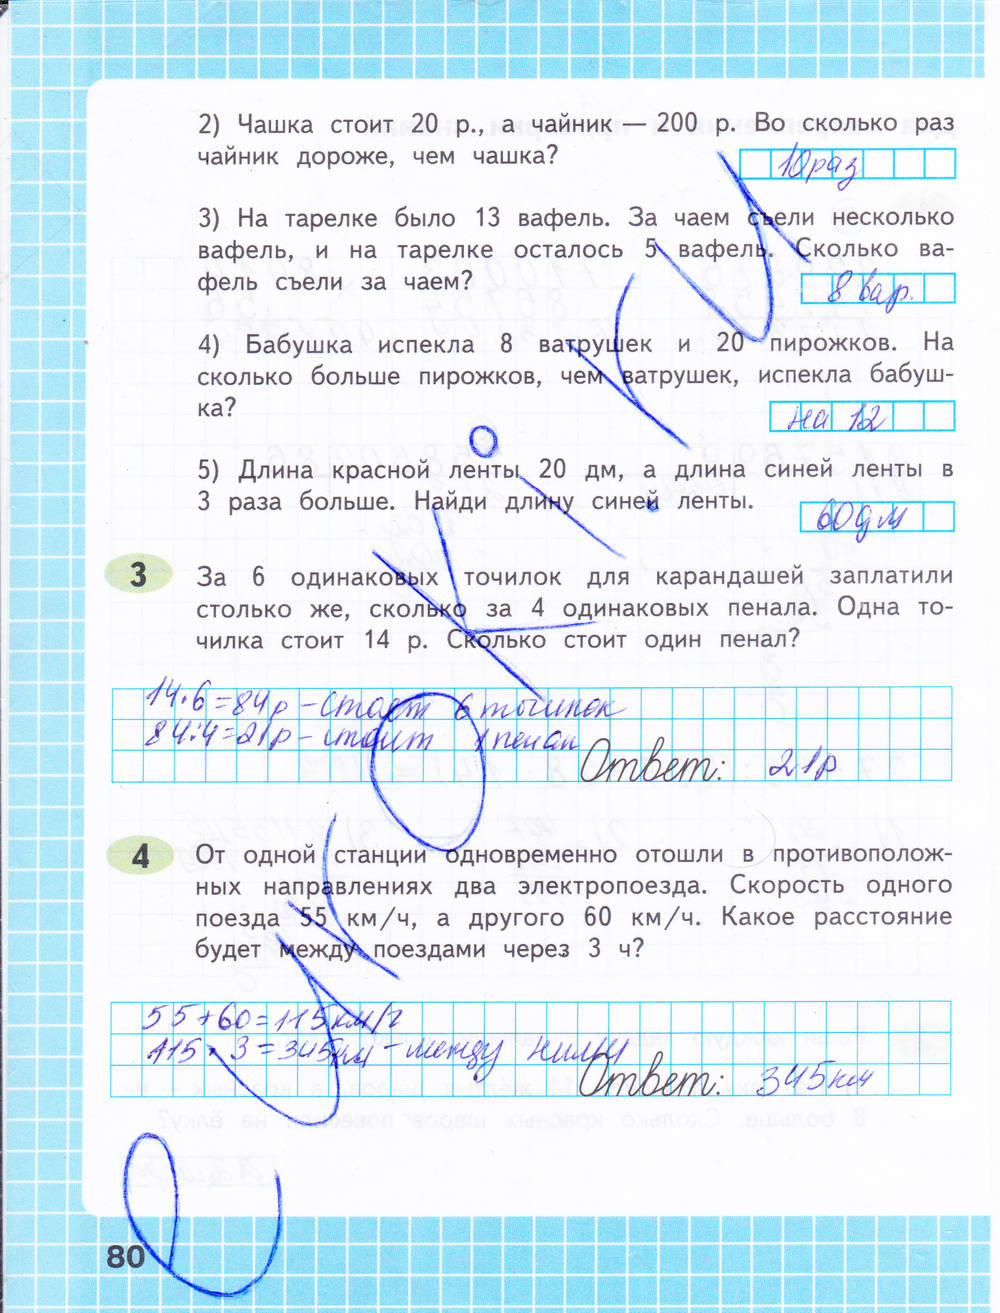 2) Чашка стоит 20 р., а чайник — 200 р. Во сколько раз
чайник дороже, чем чашка?
10 раз
3) На тарелке было 13 вафель. За чаем съели несколько
вафель, и на тарелке осталось 5 вафель. Сколько ва-
фель съели за чаем?
8 ваф.
4) Бабушка испекла 8 ватрушек и 20 пирожков. На
сколько больше пирожков, чем ватрушек, испекла бабуш-
ка?
на 12
5) Длина красной ленты 20 дм, а длина синей ленты в
3 раза больше. Найди длину синей ленты.
60 дм
3 За 6 одинаковых точилок для карандашей заплатили
столько же, сколько за 4 одинаковых пенала. Одна то-
чилка стоит 14 р. Сколько стоит один пенал?
14·6=84р – стоят 6 точилок
84:4=21р – стоит 1 пенал
Ответ: 21р
4 От одной станции одновременно отошли в противополож-
ных направлениях два электропоезда. Скорость одного
поезда 55 км/ч, а другого 60 км/ч. Какое расстояние
будет между поездами через 3 ч?
55+60=115км/ч
115·3=345км – между ними
Ответ: 345км
80